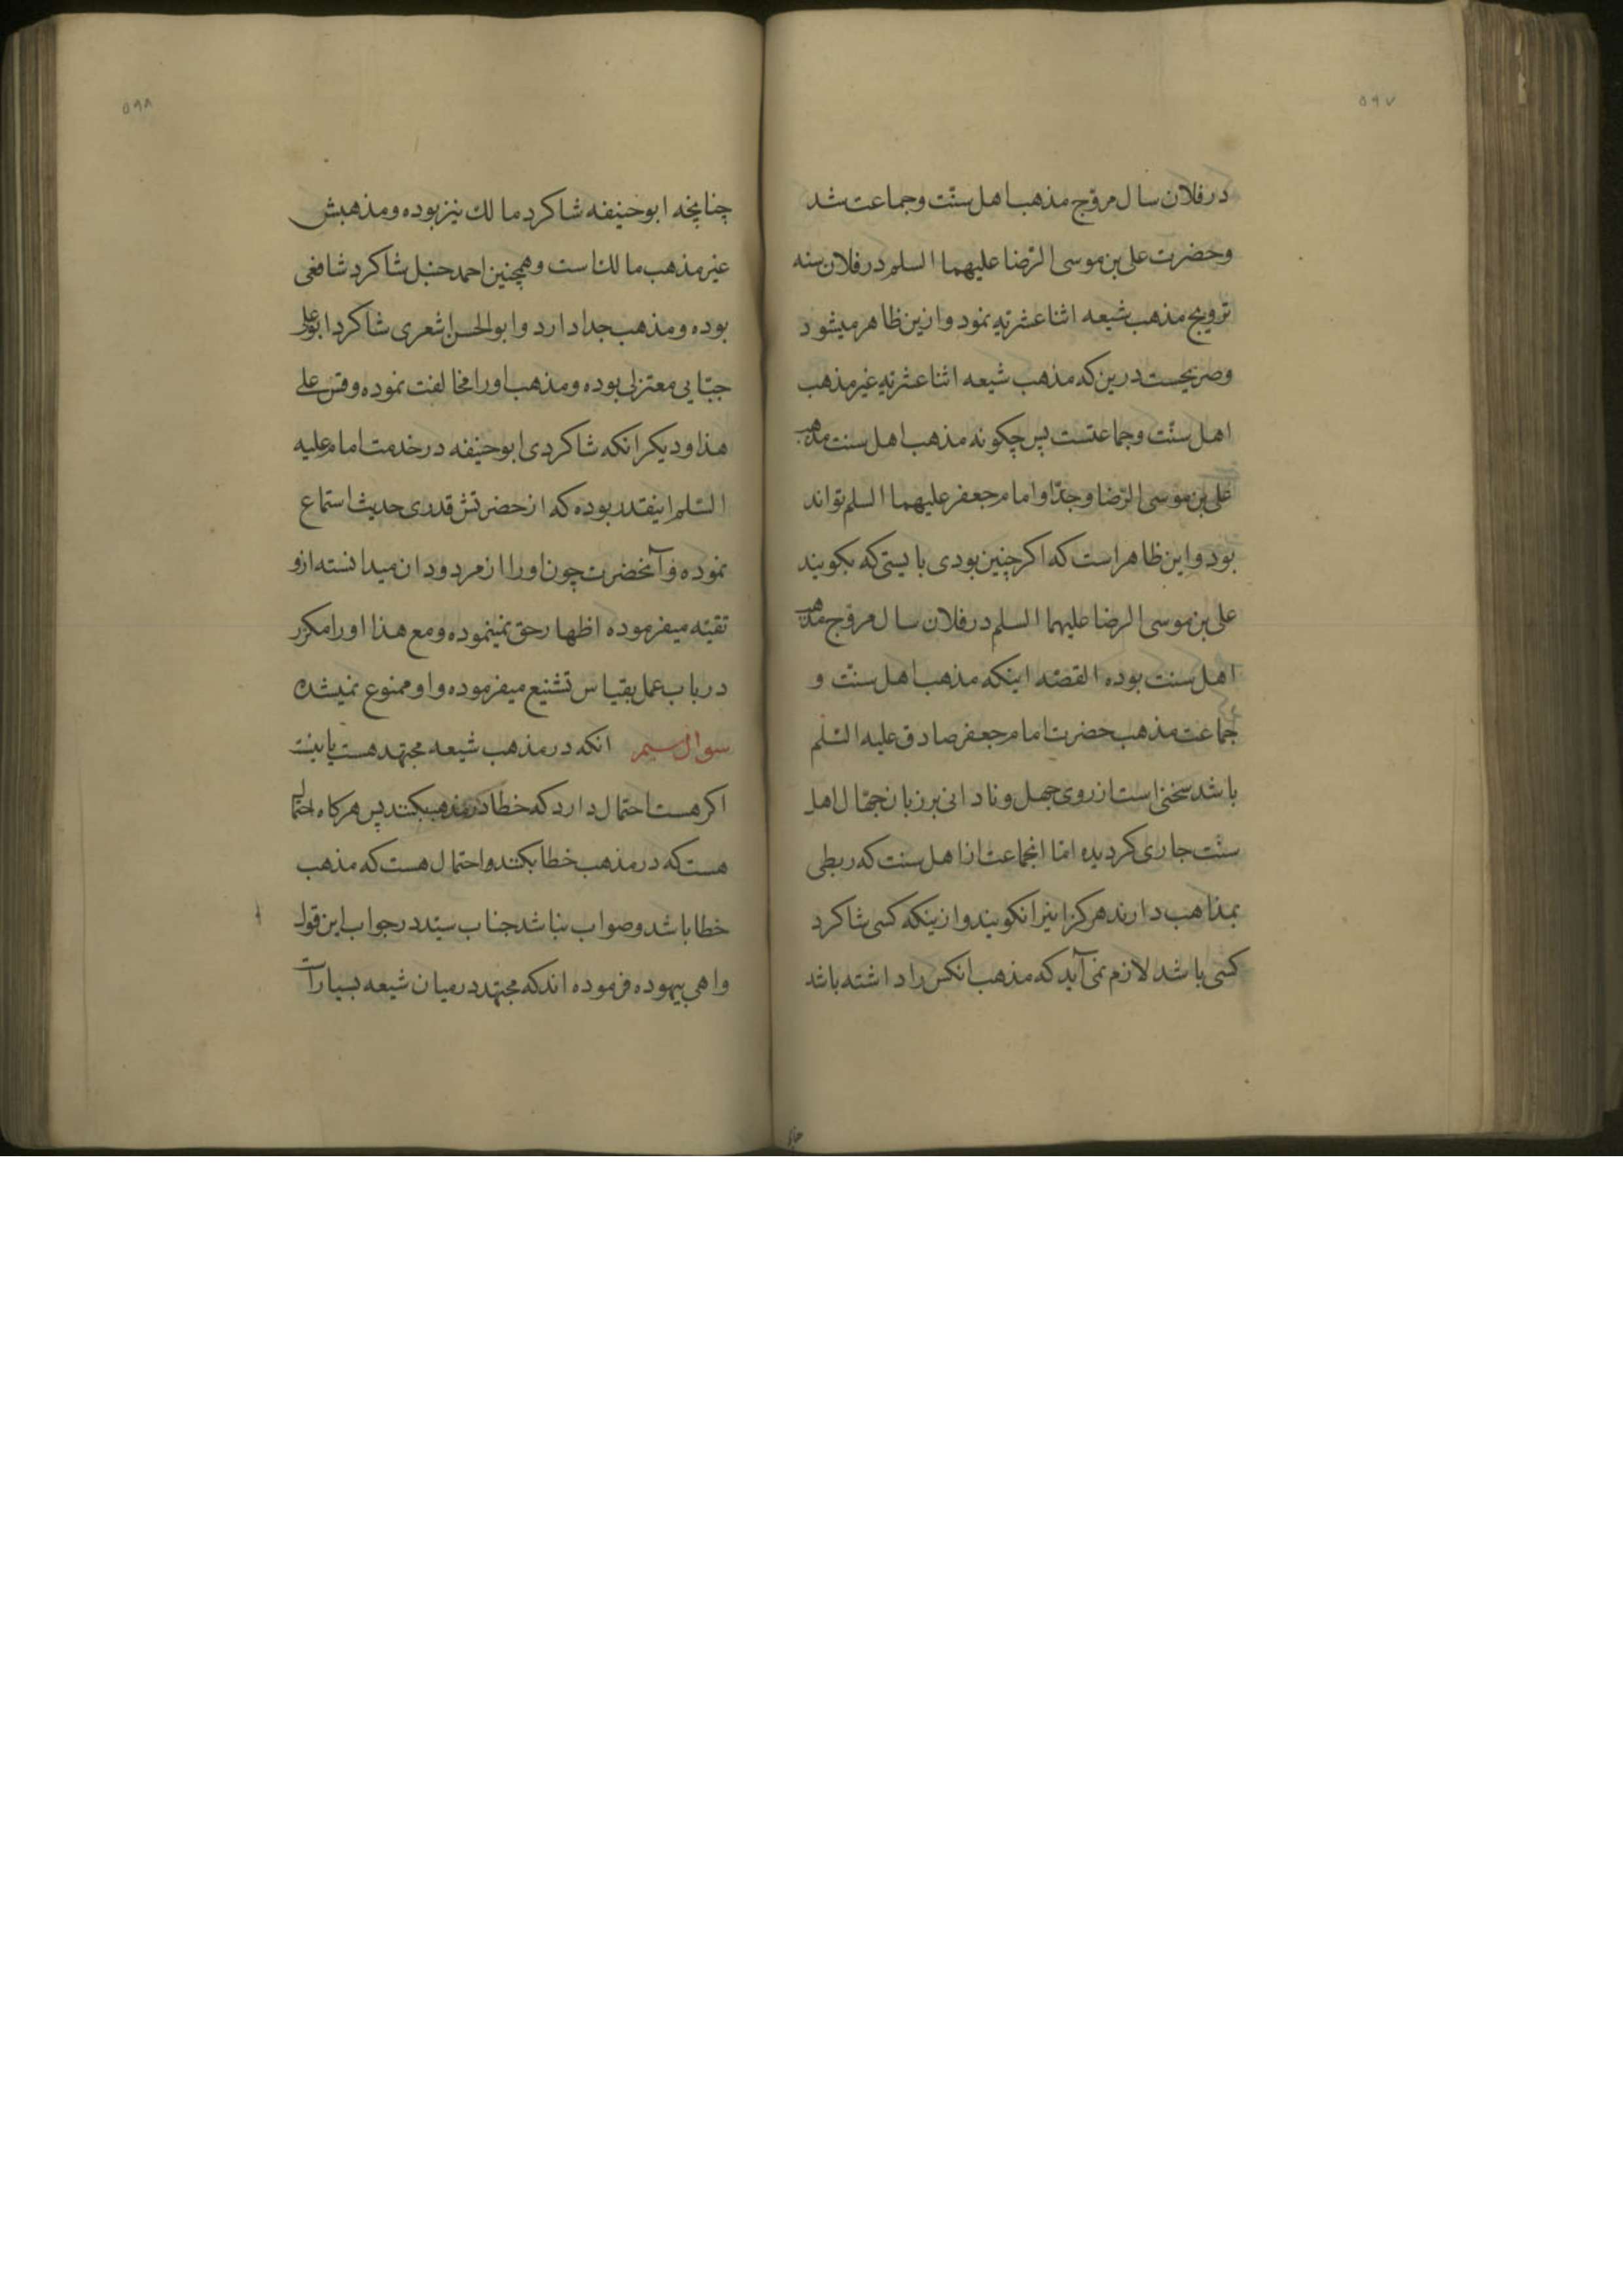 ٥٩٧
در فلان سال مروّج مذهب اهل سنّت و جماعت شد
و حضرت علی بن موسی الرّضا علیهما السلم در فلان سنه
ترویج مذهب شیعه اثنا عشریّه نمود و ازین ظاهر میشود
و صریحست درین که مذهب شیعه اثنا عشریّه غیر مذهب
اهل سنّت و جماعتست پس چکونه مذهب اهل سنت مذهب
علی بن موسی الرّضا و جدّ او امام جعفر علیهما السلم تواند
بود و این ظاهر است که اکر چنین بودی بایستی که بکویند
علی بن موسی الرضا علیهما السلم در فلان سال مروّج مذهب
اهل سنت بوده القصّه اینکه مذهب اهل سنّت و
جماعت مذهب حضرت امام جعفر صادق علیه السّلم
باشد سخنی است از روی جهل و نادانی بر زبان جهّال اهل
سنّت جاری کردیده امّا انجماعت از اهل سنت که ربطی
بمذاهب دارند هرکز اینرا نکویند و ازینکه کسی شاکرد
کسی باشد لازم نمی آید که مذهب انکس را داشته باشد
٥٩٨
چنانچه ابو حنیفه شاکرد مالك نیز بوده و مذهبش
غیر مذهب مالك است و همچنین احمد حنبل شاکرد شافعی
بوده و مذهب جدا دارد و ابو الحسن اشعری شاکرد ابو علی
جبّایی معتزلی بوده و مذهب او را مخالفت نموده و قس علی
هذا و دیکر انکه شاکردی ابو حنیفه در خدمت امام علیه
السّلم اینقدر بوده که از حضرتش قدری حدیث استماع
نموده و آنحضرت چون او را از مردودان میدانسته ازو
تقیّه میفرموده اظهار حق نمینموده و مع هذا او را مکرّر
در باب عمل بقیاس تشنیع میفرموده و او ممنوع نمیشده
سوال سیم انکه در مذهب شیعه مجتهد هست یا نیست
اکر هست احتمال دارد که خطا در مذهب بکنند پس هرکاه احتمال
هست که در مذهب خطا بکنند و احتمال هست که مذهب
خطا باشد و صواب نباشد جناب سیّد در جواب این قول
واهی بیهوده فرموده اند که مجتهد در میان شیعه بسیار است